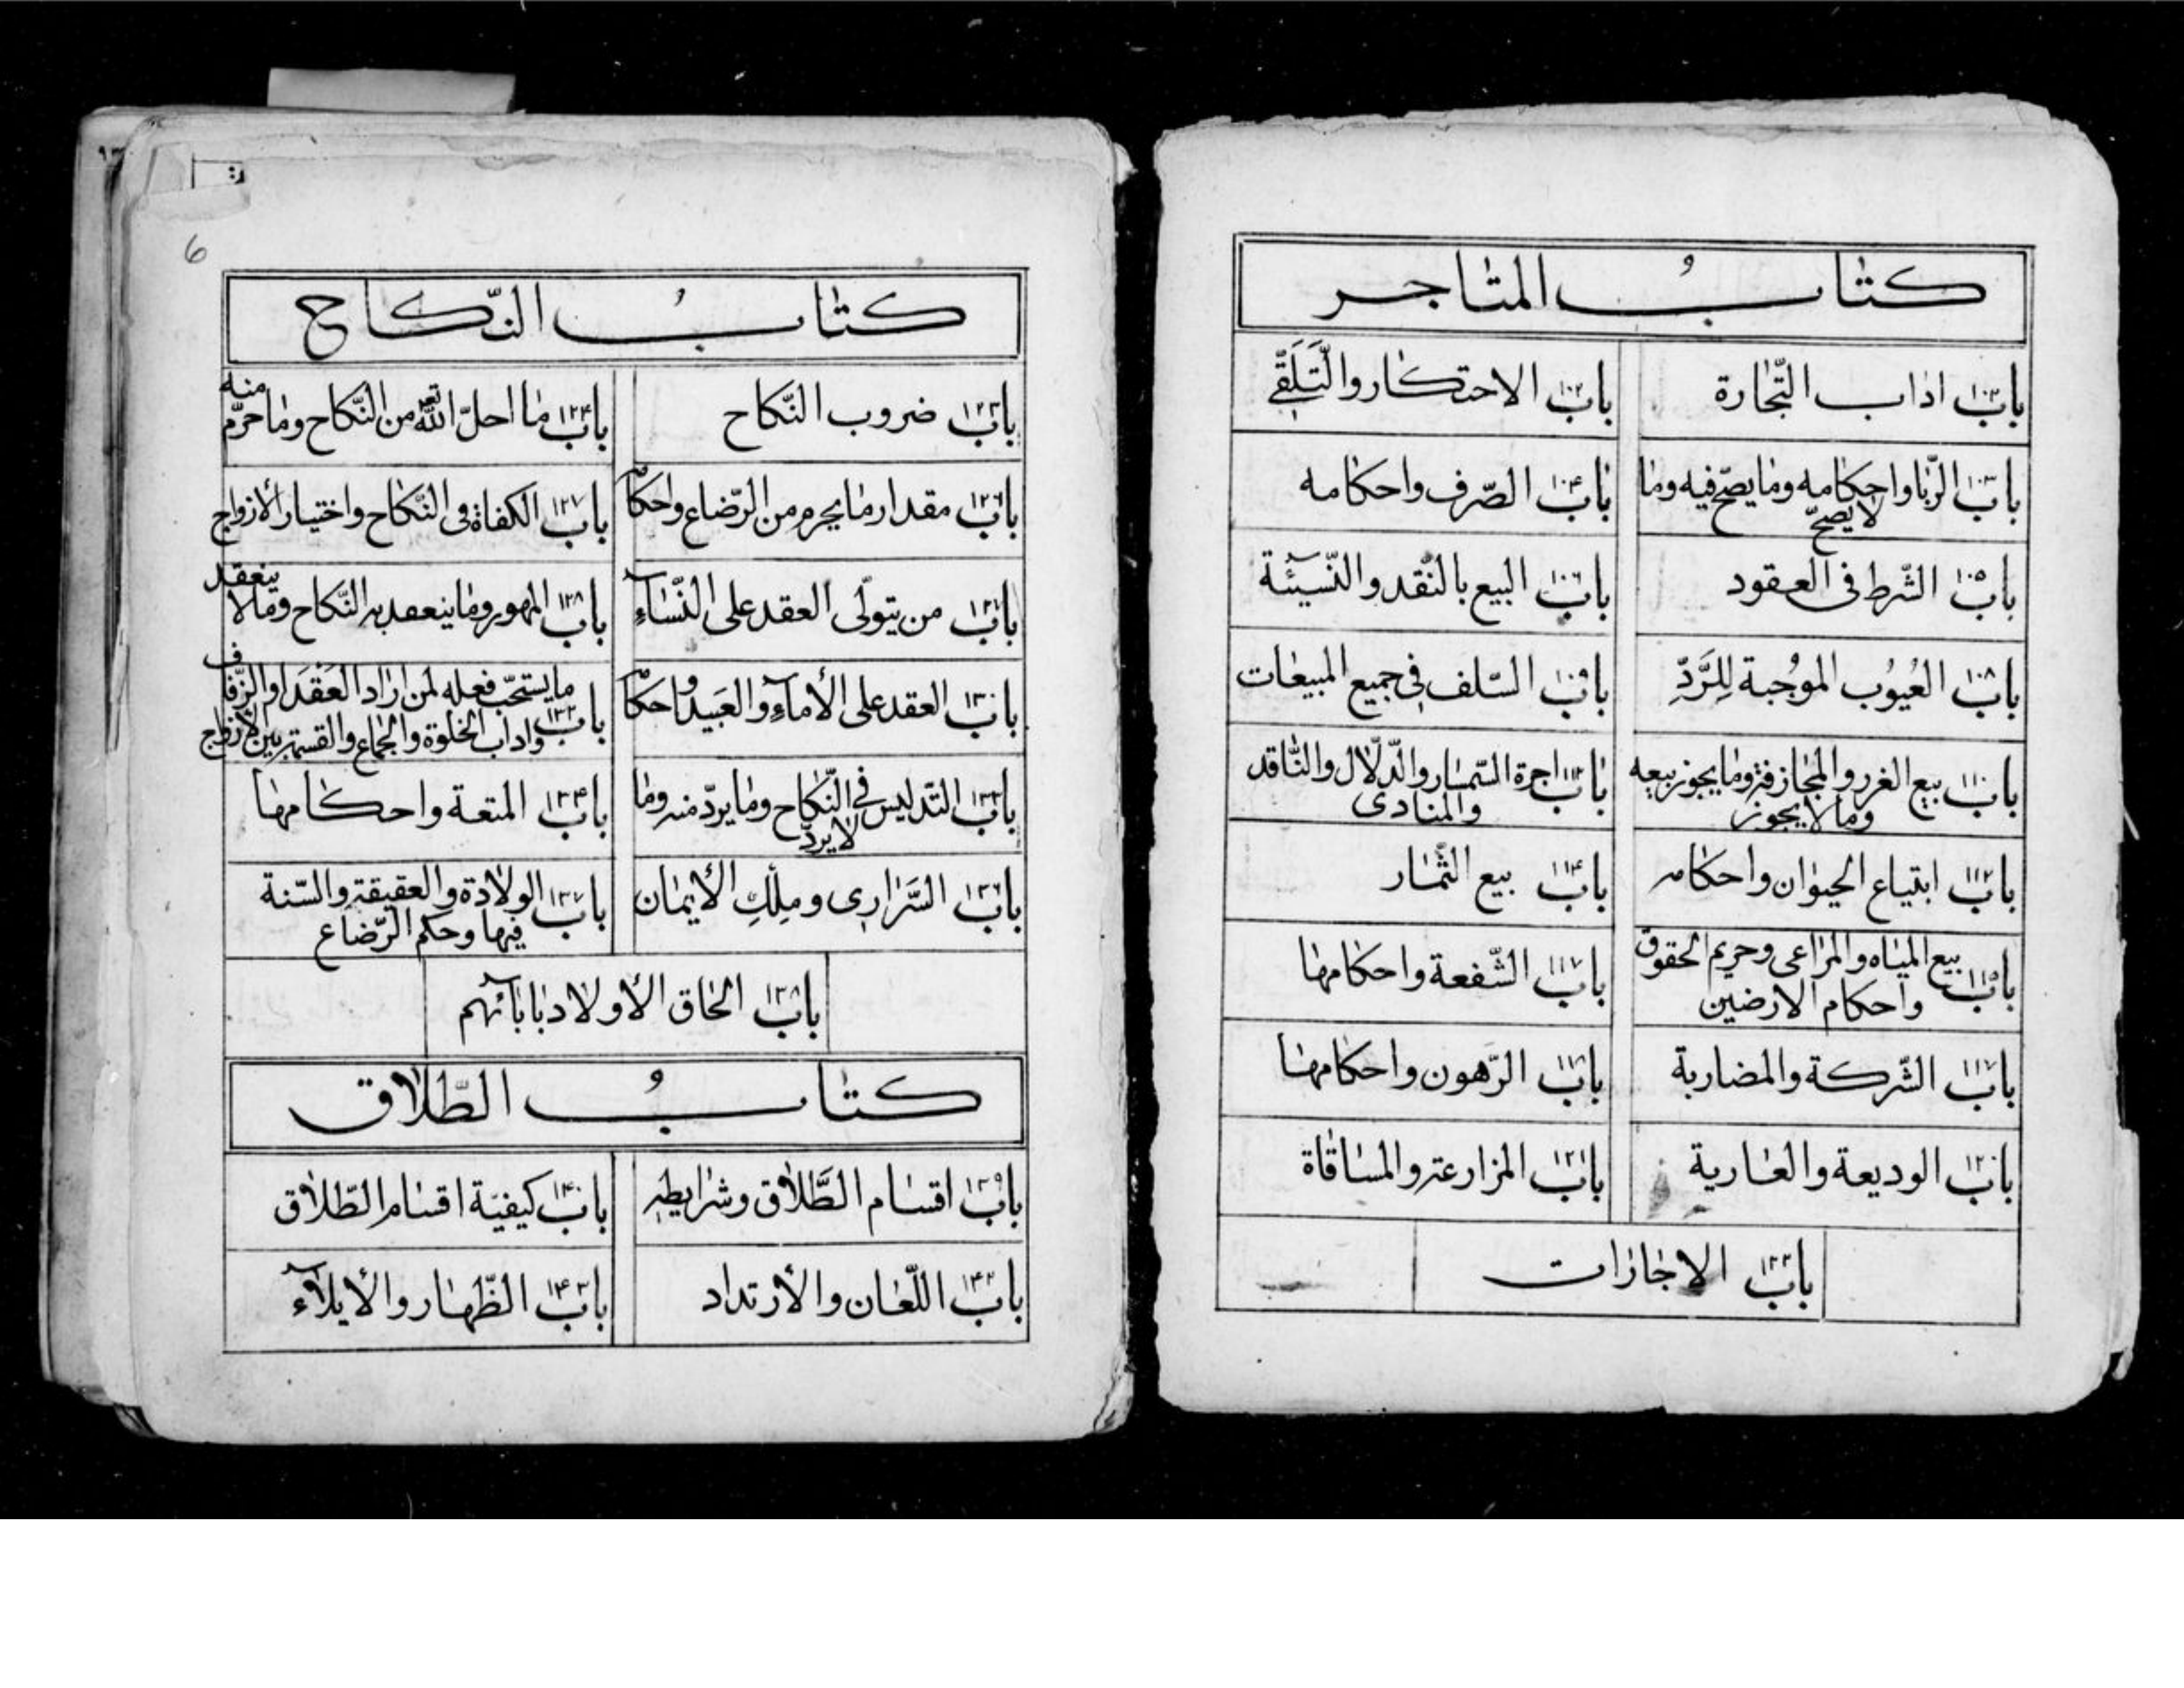 كتاب المتاجر
باب اداب التّجارة
باب الاحتكار والتَّلَقّي
باب الرّبا واحكامه وما يصحّ فيه وما
لا يصحّ
باب الصّرف واحكامه
باب الشّرط فى العقود
باب البيع بالنّقد والنّسيئة
باب العُيوُب الموُجبة لِلرَّدّ
باب السّلف فى جميع المبيعات
باب بيع الغرر والمجازفة وما يجوز بيعه
وما لا يجوز
باب اجرة السّمسار والدّلّال والنّاقد
والمنادى
باب ابتياع الحيوان واحكامه
باب بيع الثّمار
باب بيع المياه والمراعى وحريم الحقوق
واحكام الارضين
باب الشّفعة واحكامها
باب الشّركة والمضاربة
باب الرّهون واحكامها
باب الوديعة والعارية
باب المزارعة والمساقاة
باب الاجازات
6
كتابُ النّكاح
باب ضروب النّكاح
باب ما احلّ الله تع من النّكاح وما حرّم منه
باب مقدار ما يحرم من الرّضاع واحكا
باب الكفاة فى النّكاح واختيار الازواج
باب من يتولّى العقد على النّسآء
باب المهور وما ينعقد به النّكاح وما لا ينعقد
باب العقد على الأمآء والعبيد واحكا
باب ما يستحبّ فعله لمن اراد العقد او الزّفاف
واداب الخلوة والجماع والقسمة بين الازواج
باب التّدليس فى النّكاح وما يردّ منه وما
لا يردّ
باب المتعة واحكامها
باب السَّرارى وملك الأيمان
باب الولادة والعقيقة والسّنة
فيها وحكم الرّضاع
باب الحاق الأولاد بابآئهم
كتابُ الطّلاق
باب اقسام الطَّلاق وشرايطه
باب كيفيّة اقسام الطّلاق
باب اللّعان والأرتداد
باب الظّهار والأيلآء